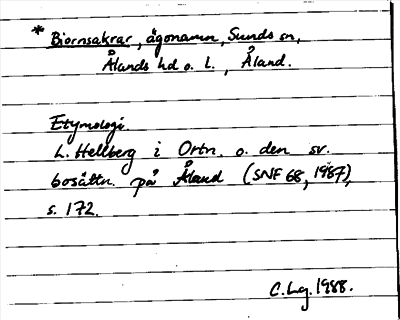 * Biornsakrar, ägonamn, Sunds sn,
Ålands hd o. l., Åland.
Etymologi.
L. Hellberg i Ortn. o. den sv.
bosättn. på Åland (SNF 68, 1987),
s. 172.
C. Lg. 1988.